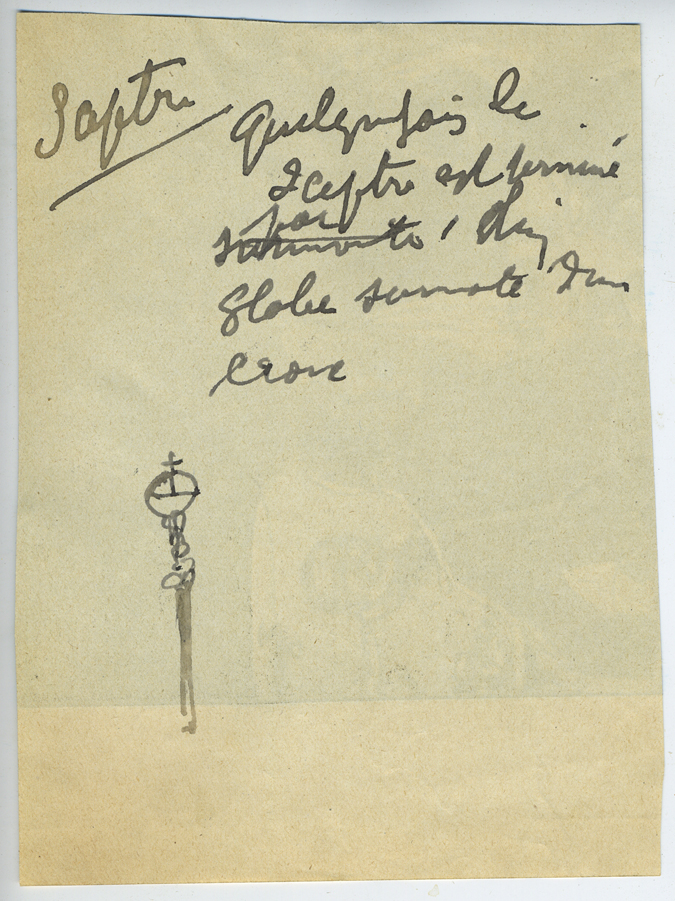 Sceptre
Quelquefois le
Sceptre est terminé
par
surmonté d'un
Globe surmoté d'un
Croix